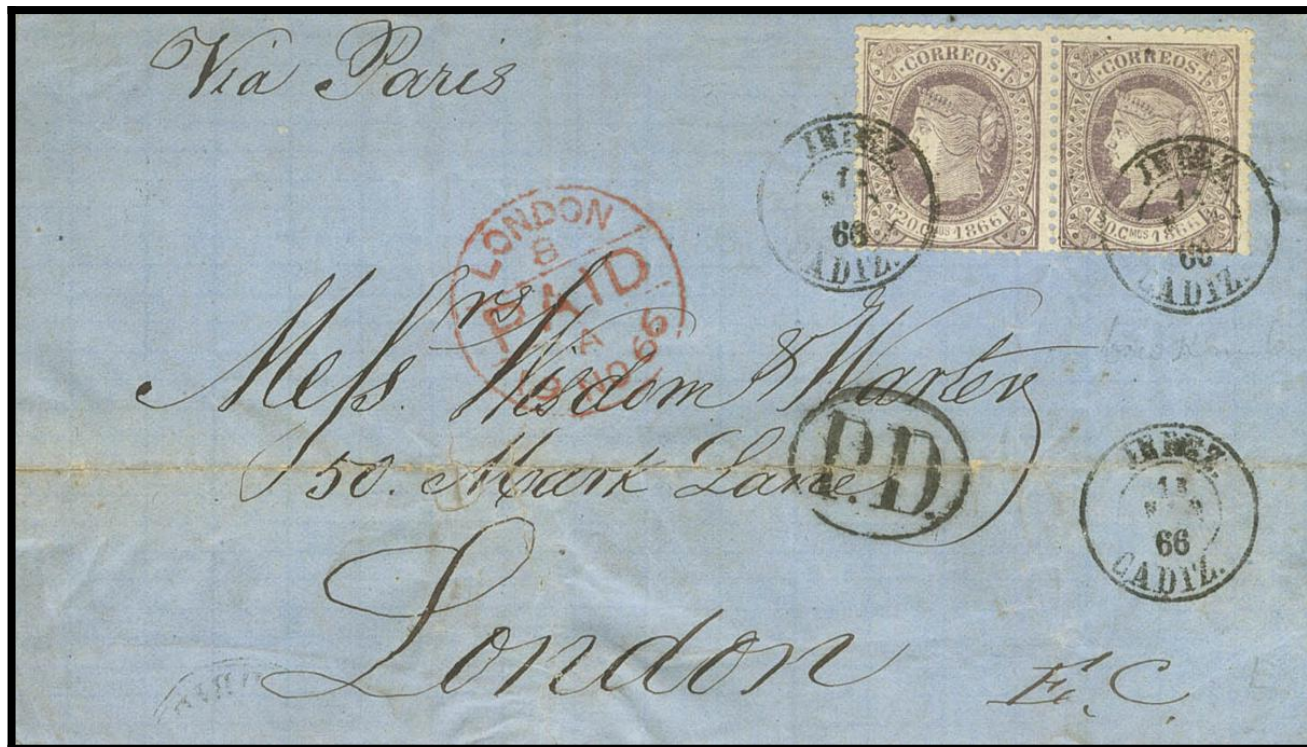 Via Paris
CORREOS
20. Cmos 1866
CORREOS
20. Cmos 1866
JEREZ
66
CADIZ.
JEREZ
66
CADIZ.
LONDON
8
PAID
A
19 NO 66
Messrs. Wisdom & Warter
50. Mark Lane
P.D.
London
E.C.
JEREZ
66
CADIZ.